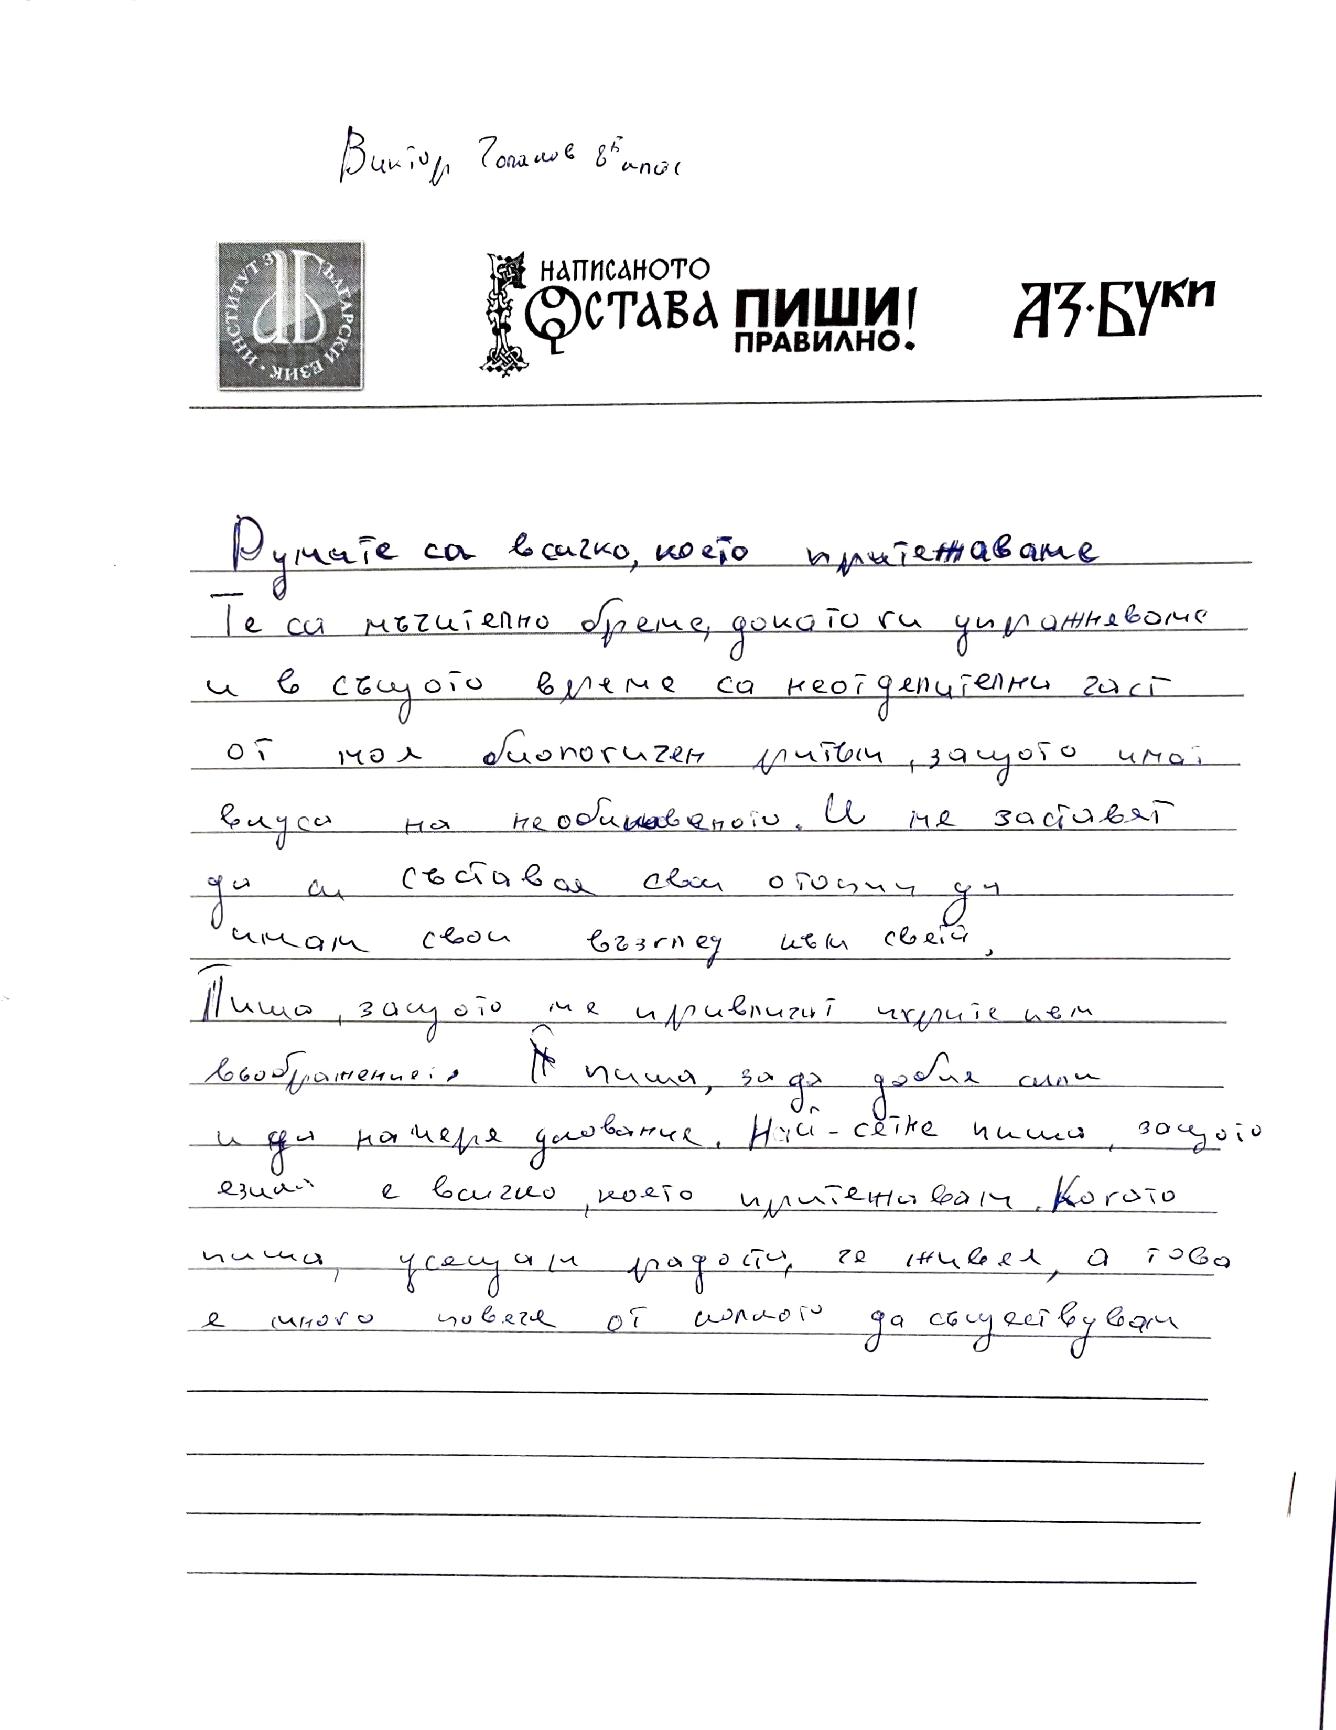 Виктор 8б клас
ИНСТИТУТ ЗА БЪЛГАРСКИ ЕЗИК
НАПИСАНОТО
ОСТАВА ПИШИ!
ПРАВИЛНО.
АЗ·БУКИ
Думите са всичко, което притежаваме
Те са мъчително бреме, докато ги упражняваме
и в същото време са неотделителни част
от моя биологичен ритъм, защото имат
вкуса на необикновеното. И ме заставят
да си съставя свои да
имам свои възглед към света,
Пиша, защото ме привличат към
въображението. А пиша, за да добия сили
и да намеря упование. Най-сетне пиша, защото
езика е всичко, което притежавам. Когато
пиша, усещам радости, че живея, а това
е много повече от колкото да съществувам